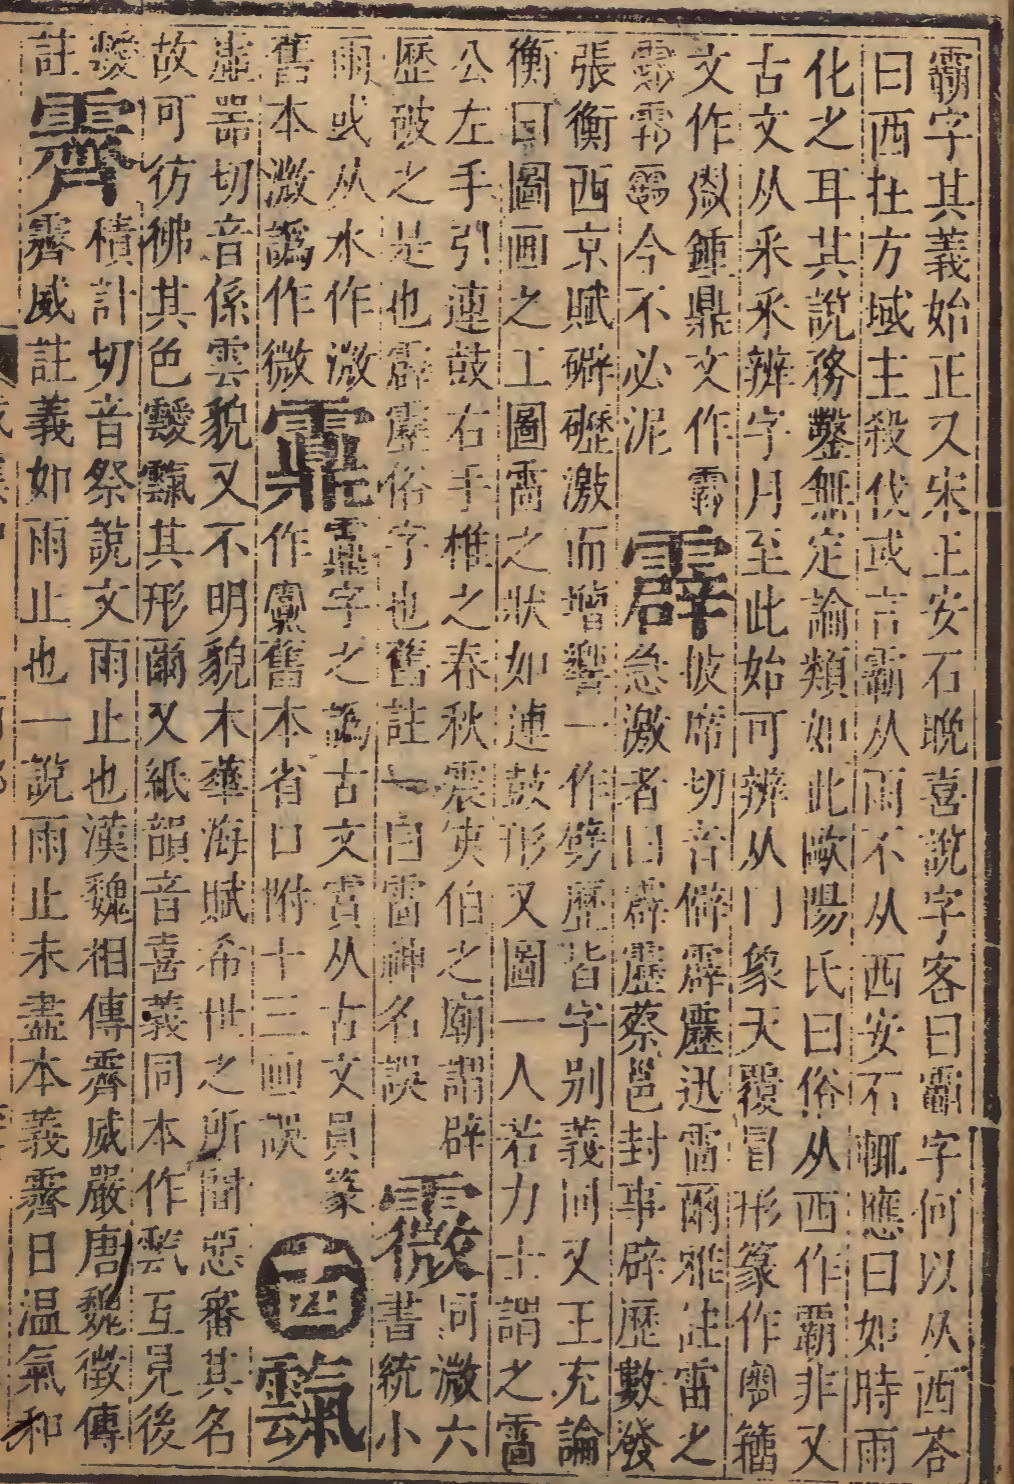 霸字其義始正又宋王安石晚喜說字客曰霸字何以从西荅
曰西在方域主殺伐或言霸从雨不从西安石輒應曰如時雨
化之耳其說務鑿無定論類如此歐陽氏曰俗从西作覇非又
古文从釆釆辨字月至此始可辨从冂象天覆冒形篆作籀
文作鍾鼎文作
今不必泥
霹
披席切音僻霹靂迅雷爾雅註雷之
急激者曰霹靂蔡邕封事辟歷數發
張衡西京賦礔礰激而增響一作劈歷皆字別義同又王充論
衡曰圖畫之工圖雷之狀如連鼓形又圖一人若力士謂之雷
公左手引連鼓右手椎之春秋震夷伯之廟謂辟
歷破之是也霹靂俗字也舊註一曰雷神名誤
溦
同溦六
書統小
雨或从水作溦
舊本溦譌作微
鼎字之譌古文霣从古文員篆
作舊本省口附十三畫誤
十四
靅
虛器切音係雲貌又不明貌木華海賦希世之所聞惡審其名
故可彷彿其色靉靅其形爾又紙韻音喜義同本作霼互見後
靉
註
霽
積計切音祭說文雨止也漢魏相傳霽威嚴唐魏徵傳
霽威註義如雨止也一說雨止未盡本義霽日温氣和